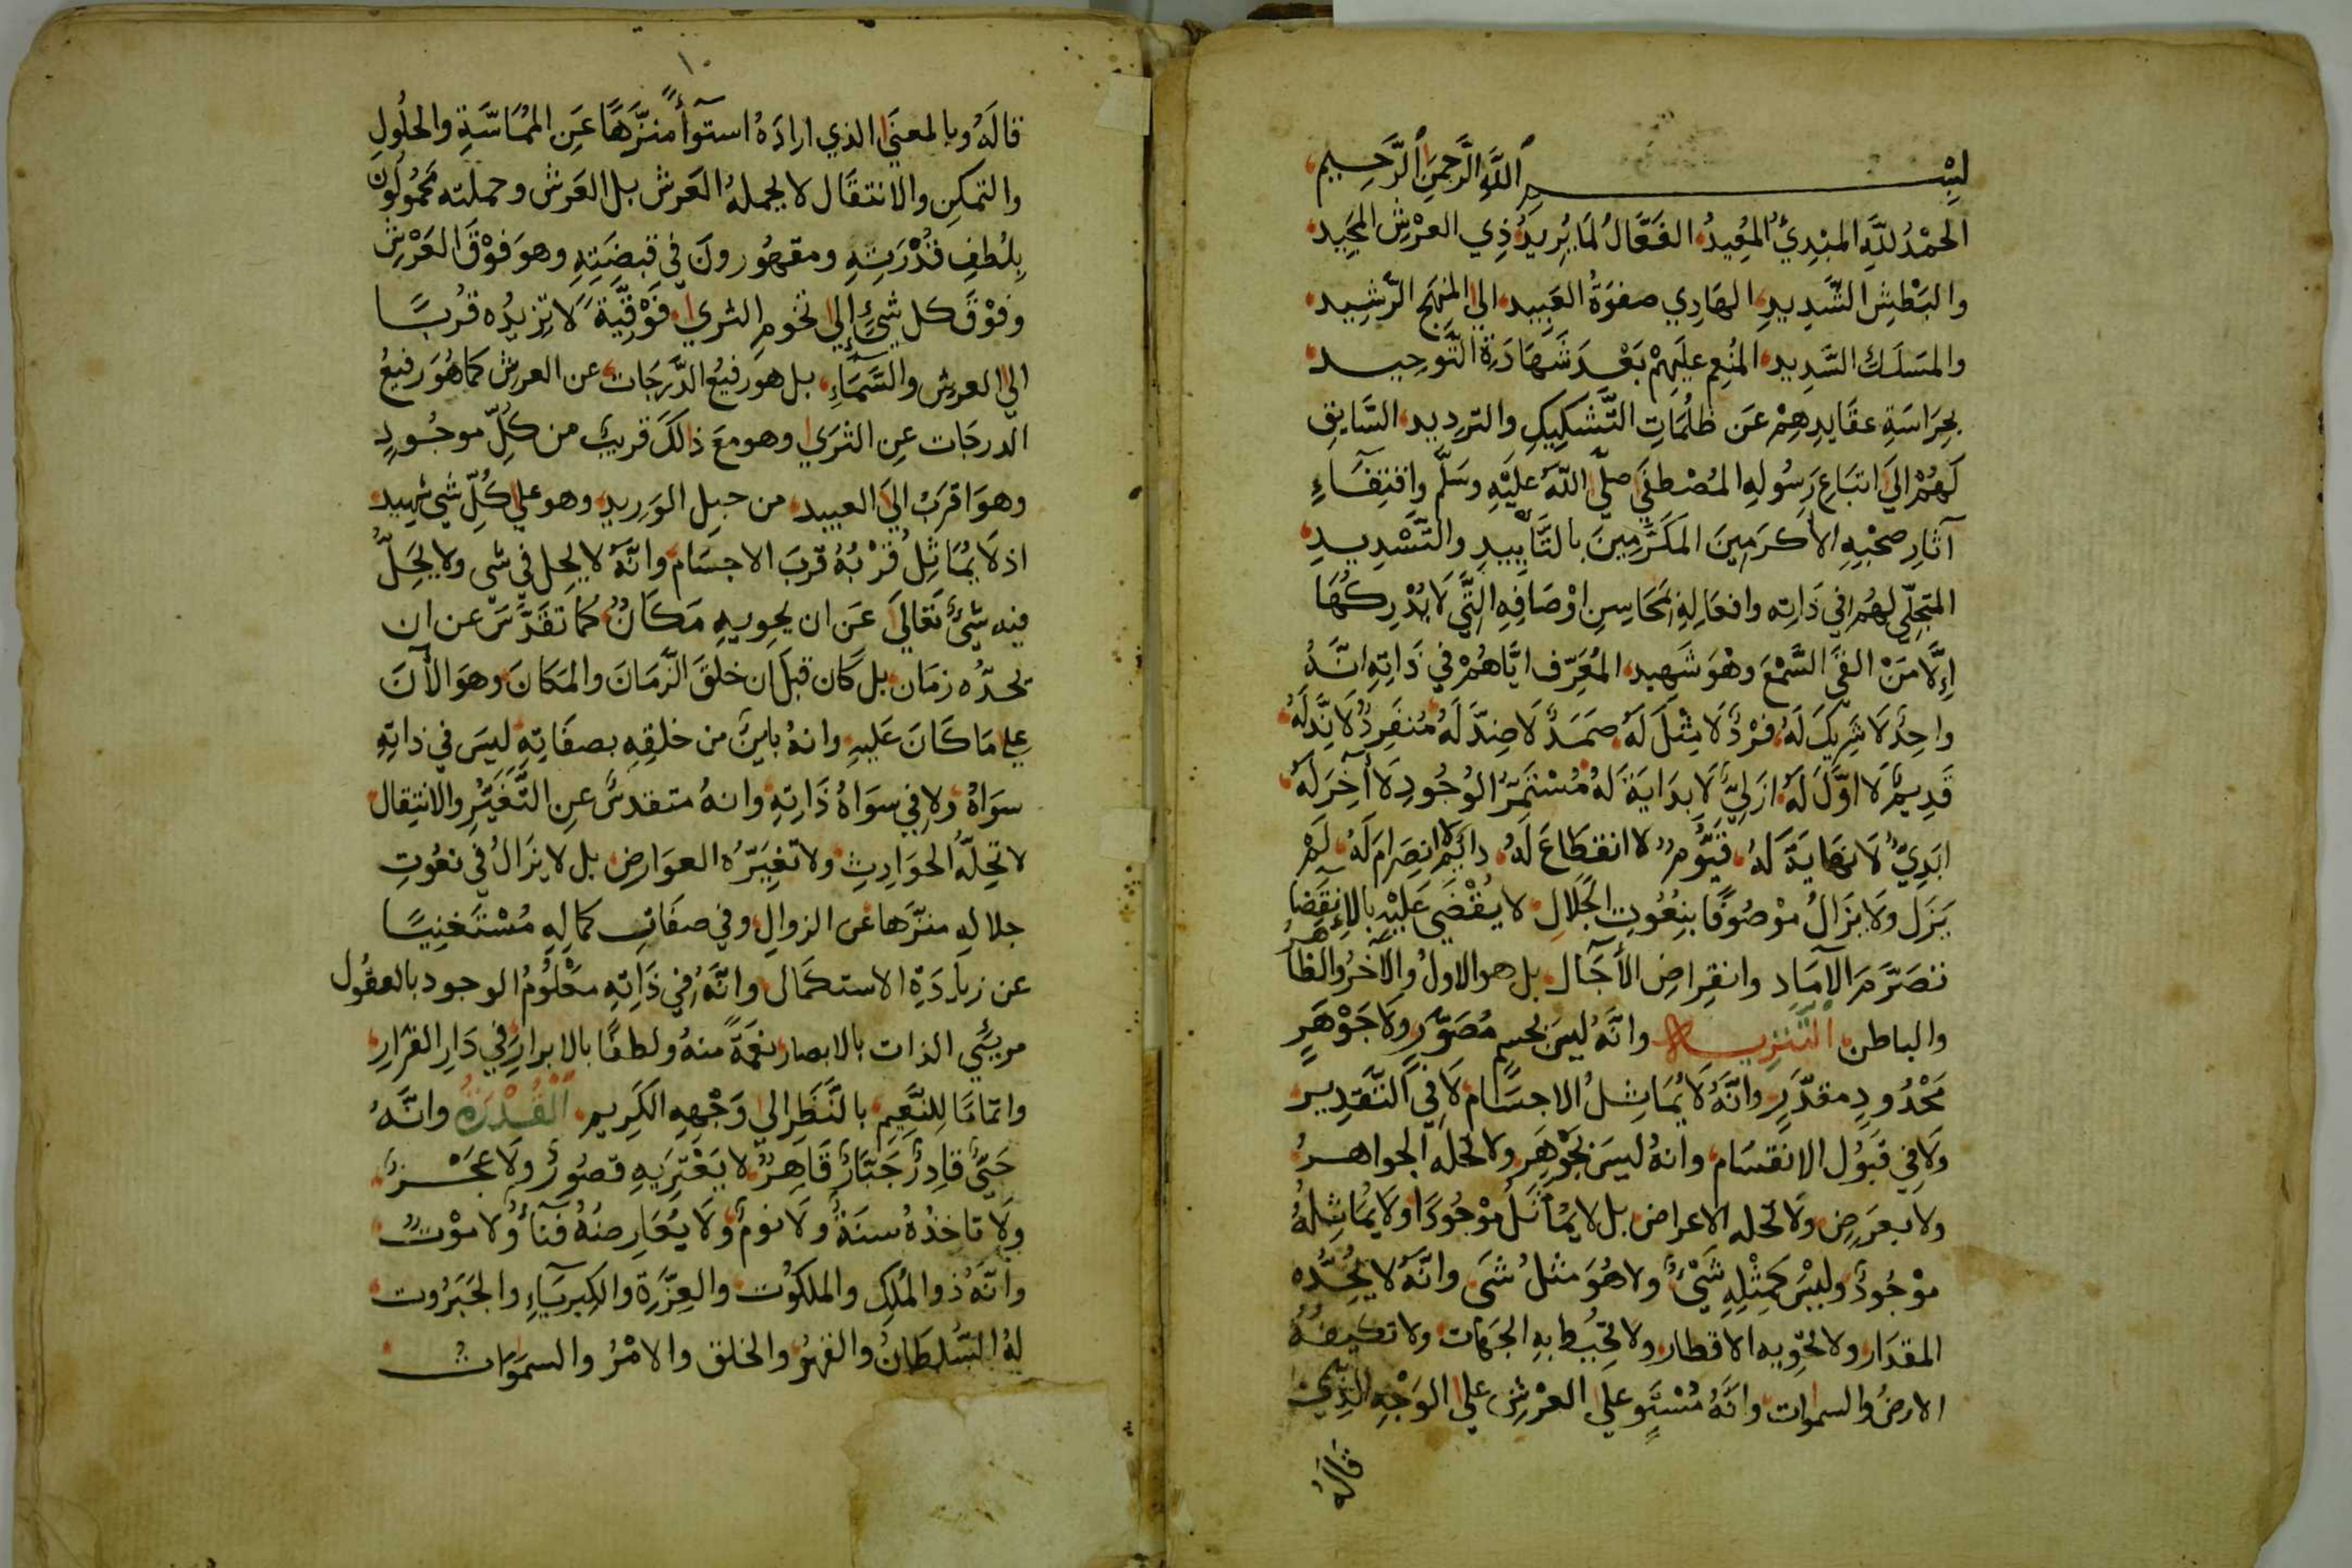 بِسْــــــــمِ اللَّهِ الرَّحْمَنِ الرَّحِيمِ
الحَمْدُ للَّهِ المبْدِئُ المُعِيدُ، الفَعَّالُ لمَا يُرِيدُ، ذِي العرْشِ المجَيِد،
والبَطْشِ الشَّدِيدِ، الهَادِي صفوَةُ العَبِيدِ، الي المنهَجِ الرَّشِيد،
والمَسَلَك السَّدِيد، المُنْعِم علَيهِمْ بَعْدَ شَهَادَةِ التَّوحِيــد،
بحِرَاسَةِ عقَايدِهِمْ عَن ظُلُمَاتِ التَّشكِيكِ والترديد، السَّايقِ
لَهُمْ الىَ اتبَاعِ رَسُولهِ المُصْطفَي صلَّى اللَّهُ عَلَيْهِ وَسَلَّم وَاقتِفَآءِ
آثَارِ صحْبِهِ الأكرَمِينَ المكَرَّمِينَ بالتَّأيِيدِ والتَّسْدِيدِ،
المتجلّي لهُم في ذَاتِه وافعَالِهِ بمَحَاسِنِ اوْصَافِهِ التَّي لَا يُدْرِكُهَا
إلَّا مَنْ القَي السَّمْعَ وهْوَ شَهِيد، المُعَرِّف ايَّاهُمْ في ذَاتِهِ انَّهُ
واحِدٌ لَا شَرِيكَ لَهُ، فرْدٌ لَا مِثْلَ لَهُ، صَمَدٌ لَا ضِدَّ لَهُ، مُنفَرِدٌ لَا نِدَّ لَهُ،
قَدِيمٌ لَا اوَّلَ لَهُ، ازَلِيٌّ لَا بدَايَةَ لَهُ، مُسْتَمِرُّ الوُجُودِ لَا آخِرَ لَهُ،
ابَدِيٌّ لَا نهَايَةَ لَهُ، قَيُّومٌ لا انقطَاعَ لَهُ، دَائِمٌ لا انصِرَامَ لَهُ، لَمْ
يَزَل ولَا يزَالُ مَوْصُوفًا بنِعُوتِ الجَلَالِ، لا يُقْضَي عَلَيْهِ بالإِنقِضَا
تنصَرُّم الآمَاد وانقِراضِ الأَجَآل بل هو الاولُ والآخَرُ والظاهِرُ
والباطن، التَنزِيــه وانَّهُ ليسَ بجسمٍ مُصَوَّرٍ، ولَا جَوْهَرٍ
مَحْدُودٍ مقدَّرٍ، وانَّهُ لَا يُمَاثِلُ الاجسَام، لَا في التَّقدِير،
ولَا فِي قبَولِ الانقسَام، وانهُ ليسَ بجَوْهَرٍ ولا تحَلهُ الجواهـرُ
ولا بعرَضٍ ولَا تحله الاعراض، بل لا يمُاثَلُ موْجُودًا ولَا يُمَاثِلهُ
موْجُودٌ وليْسَ كمِثْلِهِ شَيْئٌ ولا هُوَ مثلُ شَي، وانَّهُ لا يُحِدُّه
المقدَار، ولا تحْوِيه الاقطار، ولا تُحِيُط بهِ الجَهَات، ولا تكيفهُ
الارضُ والسموات، وانَّهُ مُسْتَوٍ علي العرْشِ علي الوَجْهِ الَّذِي
قالَهُ
١٠
قالَهُ وبالمعنَي الذي ارادَهُ استوآءً منزَّهًا عَنِ المُمَاسَّةِ والحلُولِ
والتمكنِ والانتقَال لا يحملهُ العَرش بل العَرش وحملَته محَمُولُونَ
بِلُطفِ قُدْرَتِهِ ومقهُورونَ في قبضَتِهِ وهوَ فَوْقَ العَرْشِ
وفَوْقَ كل شَيْئٍ إلي تخُومِ الثري، فَوْقيَّةً لَا تزيدُه قُربًا
الي العرشِ والسَّمَآءِ، بل هو رَفيعُ الدَّرجَات، عن العرش كما هُوَ رفيعُ
الدرجَات عنِ الثرَي، وهو معَ ذالكَ قريبٌ من كلِّ موجُودٍ
وهوَ اقرَبُ الي العبيد، من حبلِ الوَرِيدِ، وهو علي كُلِّ شي شهِيد،
اذ لَا يُمَاثِلُ قُرْبُهُ قربَ الاجسَام، وانَّهُ لا يحِل في شي ولا يحَلُّ
فيهِ شيْئٌ تعَالىَ عَن ان يحوِيهِ مَكَانٌ، كمَا تقَدَّسَ عن ان
تحدُّه زمَان، بل كَان قبلَ ان خلقَ الزَّمَانَ والمكَانَ، وهوَ الأنَ
علي مَا كَانَ عَلَيهِ، وانهُ باينٌ من خلقِهِ بصفَاتِهِ ليسَ في ذاتِهِ
سوَاهُ، ولا في سوَاهُ ذَاتِهِ، وانهُ متقدسٌ عنِ التَّغَيُّرِ والانتِقالِ،
لا تحِلهُ الحوَادِثِ، ولا تغيرّهُ العوَارِض، بل لا يزَالُ في نعُوتِ
جلالهِ منزَّها عن الزوالِ، وفي صفَاتِ كمَالِهِ مُسْتَغنِيًا
عن زيادَةِ الاستكمَال، وانَّهُ في ذَاتِهِ معْلُومُ الوجود بالعقُول
مريّئي الذات بالابصار، نعَمةً منهُ ولطفًا بالابرارِ، في دَارِ القَرارِ،
واتمامًا للنَّعِيم، بالنَّظَرِ الي وَجْهِهِ الكَرِيم، القُدْرَةُ وانَّهُ
حَيٌّ قادِرٌ جَبَّارٌ قَاهِرٌ، لا يَعْتَرِيهِ قصُورٌ ولَا عجْــزٌ،
ولَا تاخذُهُ سنَةٌ ولَا نومٌ، ولَا يُعَارِضُهُ فَنَآءٌ ولا موْتٌ،
وانَّهُ ذو المُلكِ والملكوُت، والعِزَّةِ والكِبرِيَآءِ والجَبَرُوت،
لهُ السُّلطَانُ والقهرُ، والخلق والامْرُ والسموَات،